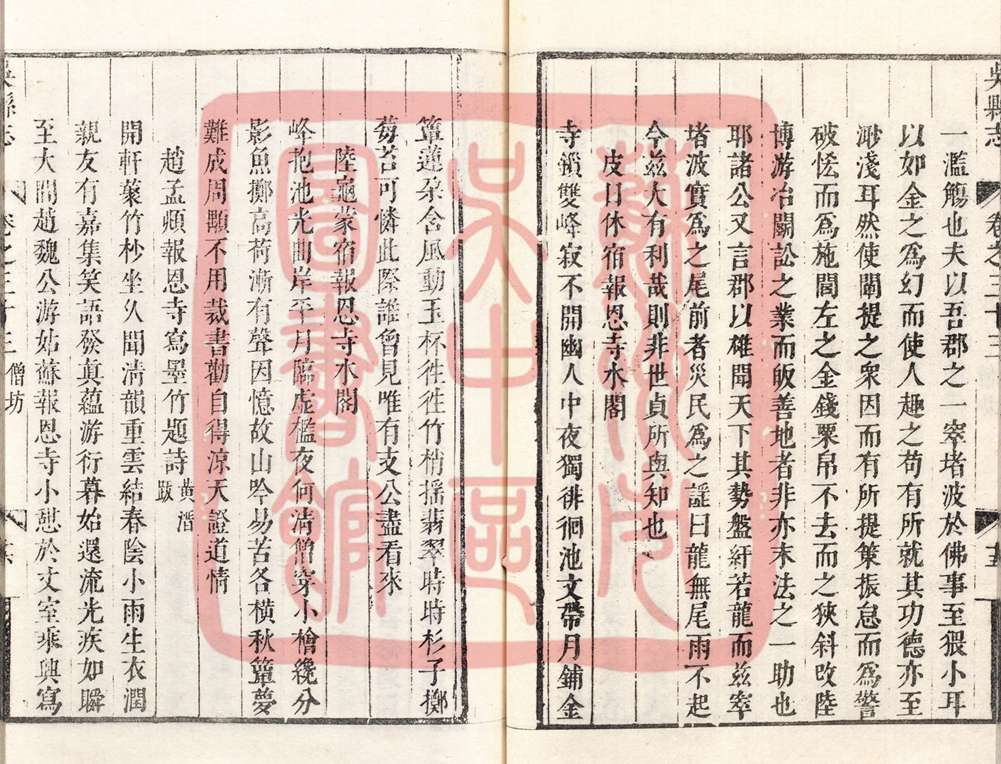 吳縣志
卷之三十三
一濫觴也夫以吾郡之一窣堵波於佛事至猥小耳
以如金之為幻而使人趣之苟有所就其功德亦至
眇淺耳然使闡提之衆因而有所提策振怠而為警
破慳而為施閭左之金錢粟帛不去而之狹斜改陸
博游冶鬬訟之業而皈善地者非亦末法之一助也
耶諸公又言郡以雄聞天下其勢盤紆若龍而茲窣
堵波實為之尾前者災民為之謡曰龍無尾雨不起
今茲大有利哉則非世貞所與知也
皮日休宿報恩寺水閣
寺鎖雙峰寂不開幽人中夜獨徘徊池文帶月鋪金
簟蓮朵含風動玉杯徃徃竹梢摇翡翠時時杉子擲
莓苔可憐此際誰曾見唯有支公盡看來
陸龜蒙宿報恩寺水閣
峰抱池光曲岸平月臨虛檻夜何清僧穿小檜纔分
影魚擲高荷漸有聲因憶故山吟易苦各橫秋簟夢
難成周顒不用裁書勸自得涼天證道情
趙孟頫報恩寺寫墨竹題詩 黄溍跋
開軒蓺竹杪坐久聞清韻重雲結春陰小雨生衣潤
親友有嘉集笑語發真蘊游衍暮始還流光疾如瞬
至大間趙魏公游姑蘇報恩寺小憩於丈室乘興寫
吳縣志
卷之三十三 僧坊
蘇州市
吳中區
圖書館